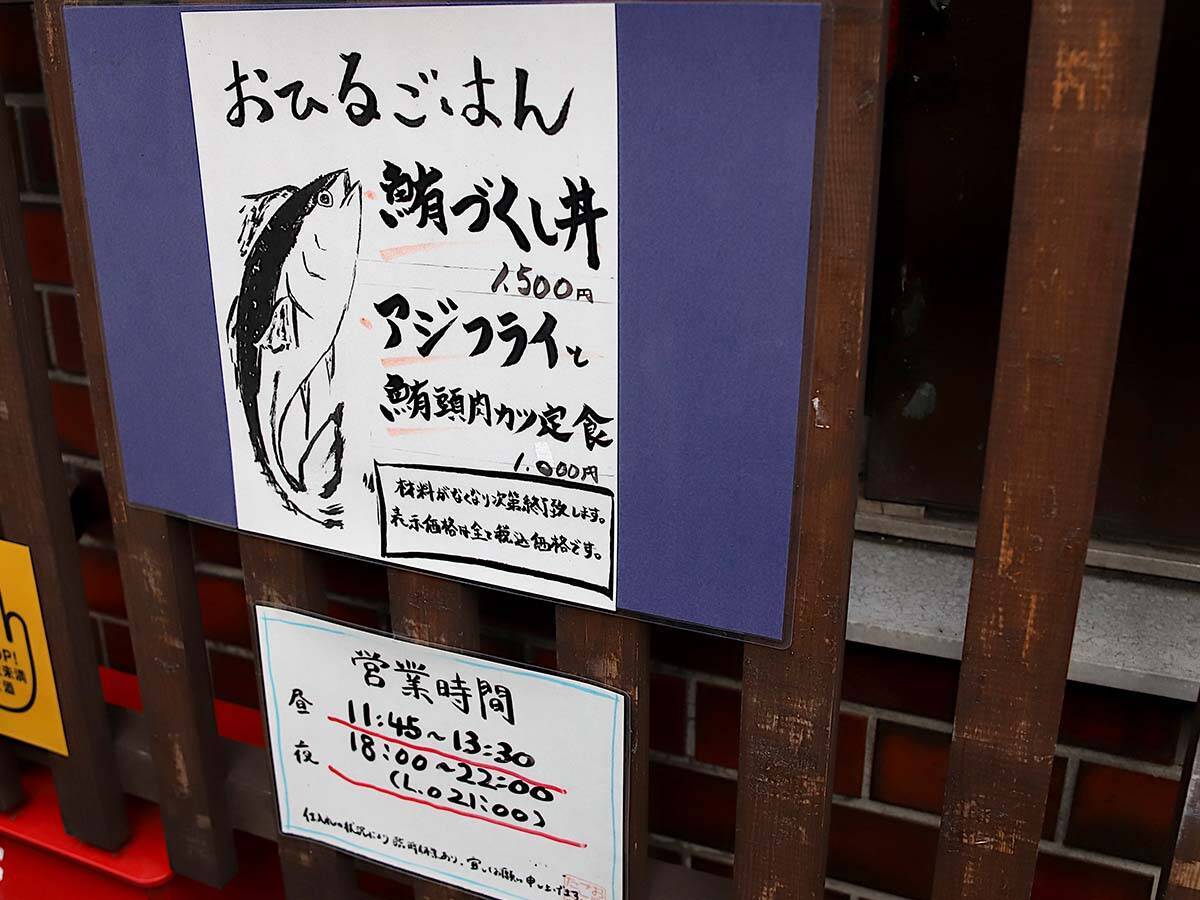 おひるごはん
鮪づくし丼
1,500円
アジフライと
鮪頭肉カツ定食
1,000円
材料がなくなり次第終了致します。
表示価格は全て税込価格です。
営業時間
昼 11:45～13:30
夜 18:00～22:00
(L.O 21:00)
仕入れの状況により臨時休業あり、宜しくお願い申し上げます